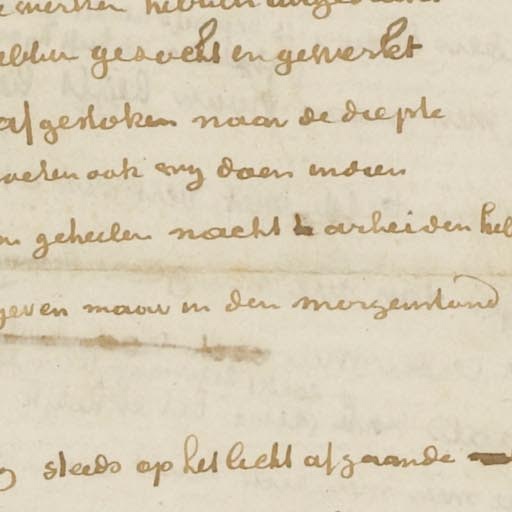 gesocht en gewerkt
afgestoken naar de diepte
ook wij doen indien
geheelen nacht arbeiden heb
geven maar in den morgenstond
steeds op het licht afgaande